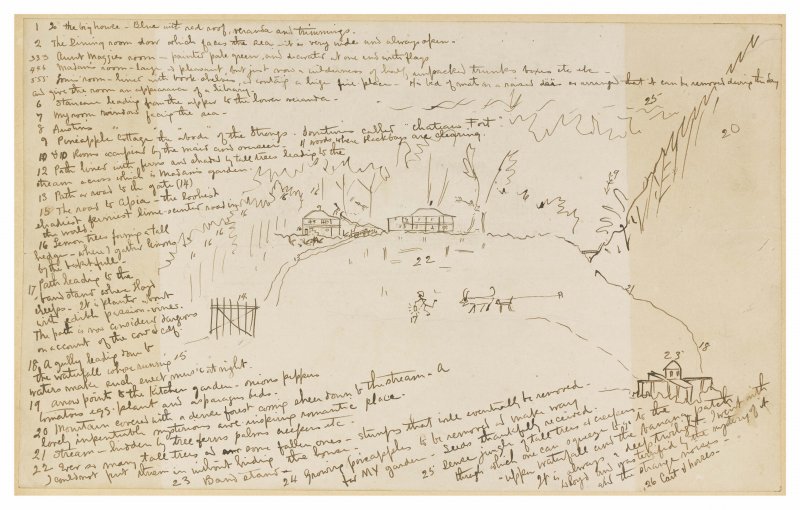 1 2 the big house - Blue with red roof, veranda and trimmings.
2 The Dining room door which faces the sea - it is very wide and always open.
333 Aunt Maggies room - painted pale green, and decorated at one end with flags
444 Madam's room - large & pleasant, but just now a wilderness of half unpacked trunks boxes etc etc
555 room - lined with book shelves, & contains a large fire place - His bed of mats on a raised dais - so arranged that it can be removed during the day
and give the room an appearance of a library -
6 Staircase leading from the upper to the lower veranda -
7 My room round facing the sea -
8 Austins "
9 Pineapple Cottage the abode of the Strongs. Sometimes called "chateau Fort"
10 & 10 Rooms occupied by the maid and overseer 11 woods where black boys are clearing.
12 Path lined with ferns and shaded by tall trees leading to the
stream across which is Madam's garden.
13 Path or road to the gate (14)
15 The road to Apia - the loveliest
shadiest ferniest lime-scented road in
the world.
16 Lemon trees forming a tall
hedge - where I gather lemons
by the basketfull
17 Path leading to the
band stand where Lloyd
sleeps - It is planted about
with edible passion-vines.
The path is now considered dangerous
on account of the cow & calf
18 A gully leading down to
the waterfall whose running
waters make such sweet music at night.
19 arrow points to the kitchen garden - onions peppers
tomatoes egg-plant and asparagus beds.
20 Mountain covered with a dense forest coming sheer down to the stream - A
lovely impenetrable mysterious awe inspiring romantic place.
21 Stream - hidden by tree ferns palms creepers etc -
22 Ever so many tall trees and some fallen ones - stumps that will eventually be removed -
I could not put them in without hiding the house.
23 Band stand -
24 Growing pineapples to be removed & make way
for MY garden - Seeds thankfully received.
25 Dense jungle of tall trees & creepers
through which one can squeeze to the
upper waterfall and the banana patch
It is always a deep twilight - I went with
Lloyd and was terrified by the mystery of it
and the strange noises -
26 Cart & horses -
25
20
19
16
16
16
15
14
22
17
21
23
18